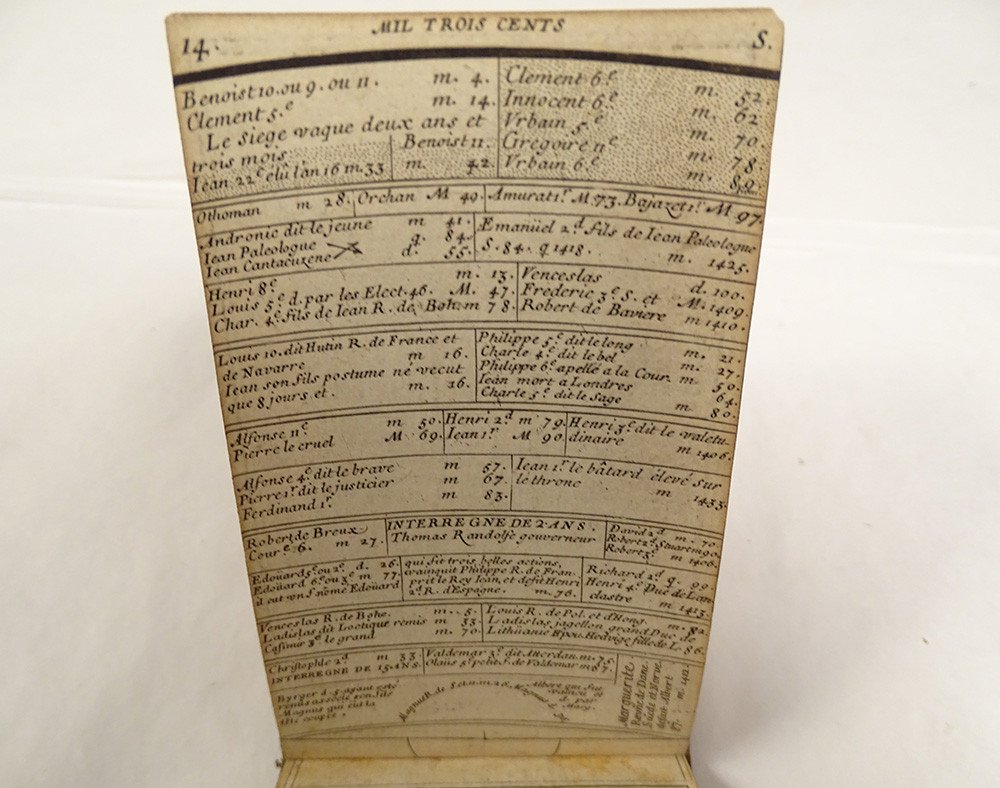 MIL TROIS CENTS
14. S.
Benoist 10. ou 9. ou 11. m. 4.
Clement 5.e m. 14.
Le Siege vaque deux ans et
trois mois.
Iean 22e élu l'an 16 m. 33
Benoist 11.
m. 42.
Clement 6e m. 52.
Innocent 6e m. 62
Vrbain 5e m. 70.
Gregoire 11e m. 78.
Vrbain 6e m. 89.
Othoman m 28.
Orchan M 49.
Amurat 1r M 73. Bajazet 1r M 97.
Andronic dit le jeune m 41.
Iean Paleologue q. 84.
Iean Cantacuzene d. 55.
Emanüel 2d fils de Iean Paleologue
S. 84. q 1418. m. 1425.
Henri 8e m. 13.
Louis 5e d. par les Elect. 46. M. 47.
Char. 4e fils de Iean R. de Boh. m 78.
Venceslas d. 100.
Frederic 3e S. et M. 1409.
Robert de Baviere m 1410.
Louis 10. dit Hutin R. de France et
de Navarre m 16.
Iean son fils postume né vecut
que 8 jours et. m. 16.
Philippe 5e dit le long m. 21.
Charle 4e dit le bel m. 27.
Philippe 6e apellé a la Cour. m. 50.
Iean mort a Londres 64.
Charle 5e dit le Sage m 80.
Alfonse 11e m 50.
Pierre le cruel M 69.
Henri 2d m 79.
Iean 1r M 90.
Henri 3e dit le valetu
dinaire m 1406.
Alfonse 4e dit le brave m 57.
Pierre 1r dit le justicier m 67.
Ferdinand 1r. m 83.
Iean 1r le bâtard élevé sur
le throne m 1433.
Robert de Breux
Cour.e 6. m 27.
INTERREGNE DE 2 ANS.
Thomas Randolfe gouverneur
David 2d m. 70.
Robert 2d Stuart m 90.
Robert 3e m 1406.
Edouard 5e ou 2e d. 26.
Edoüard 6e ou 3e m 77.
il eut un f. nomé Edoüard
qui fit trois belles actions,
vainquit Philippe R. de Fran,
prit le Roy Iean, et defit Henri
2d R. d'Espagne. m. 76.
Richard 2d q. 99.
Henri 4e Duc de Lan
clastre m 1413.
Venceslas R. de Bohe. m. 5.
Ladislas dit Loctique remis m 33.
Casimir 3e le grand m. 70.
Louis R. de Pol. et d'Hong. m. 82
Ladislas jagellon grand Duc de
Lithüanie Epou. Hedvige fille de L. 86.
Christophle 2d m 33.
INTERREGNE DE 15 ANS.
Valdemar 3e dit Atterdan. m. 75.
Olaüs 5e petit f. de Valdemar m 87.
Marguerite
Reine de Dane
Suede et Norve
defait Albert
m. 1412.
Byrger d. 5 ayant esté
remis associe son fils
Magnus qui eut la
tête coupée.
Magnus R. de
Albert qui fut
vaincu
par
Marg.